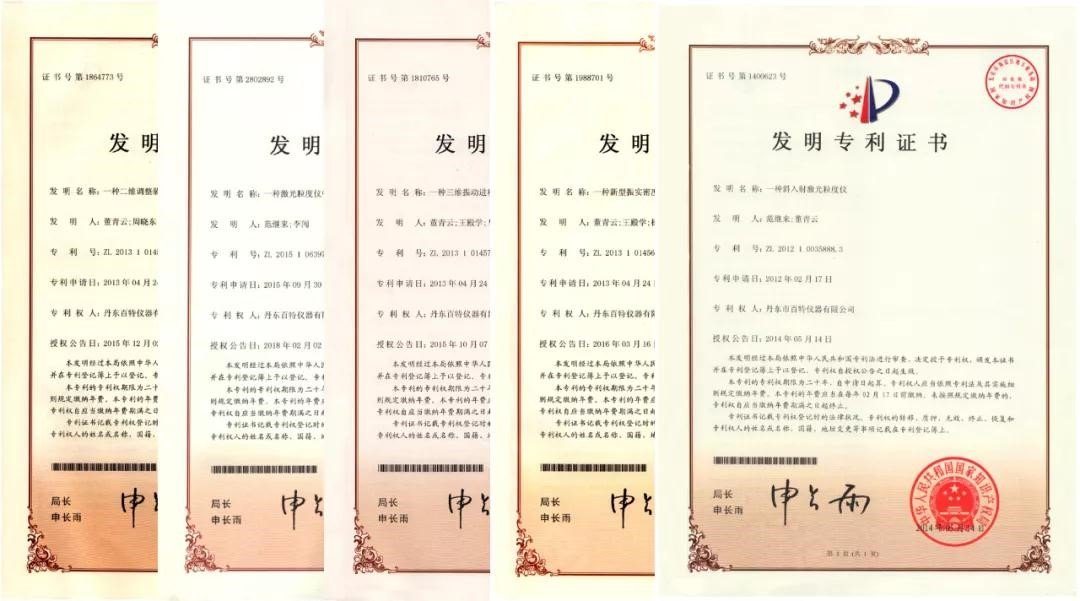 证书号第1864773号
发明
发明名称:一种二维调整
发明人:董青云;周晓东
专利号:ZL 2013 1 014
专利申请日:2013年04月2
专利权人:丹东百特仪器有
授权公告日:2015年12月0
本发明经过本局依照中华
并在专利登记簿上予以登记。专
本专利的专利权期限为二十
则规定缴纳年费。本专利的年费
专利权自应当缴纳年费期满之日
专利证书记载专利权登记时
专利权人的姓名或名称、国籍、
局长
申长雨
证书号第2802892号
发明
发明名称:一种激光粒度仪
发明人:范继来;李闯
专利号:ZL 2015 1 0639
专利申请日:2015年09月30
专利权人:丹东百特仪器有
授权公告日:2018年02月02
本发明经过本局依照中华人
并在专利登记簿上予以登记。专
本专利的专利权期限为二十
则规定缴纳年费。本专利的年费
专利权自应当缴纳年费期满之日
专利证书记载专利权登记时的
专利权人的姓名或名称、国籍、
局长
申长雨
证书号第1810765号
发明
发明名称:一种三维振动进
发明人:董青云;王殿学;
专利号:ZL 2013 1 01457
专利申请日:2013年04月24
专利权人:丹东百特仪器有
授权公告日:2015年10月07
本发明经过本局依照中华人
并在专利登记簿上予以登记。专
本专利的专利权期限为二十
则规定缴纳年费。本专利的年费
专利权自应当缴纳年费期满之日
专利证书记载专利权登记时的
专利权人的姓名或名称、国籍、
局长
申长雨
证书号第1988701号
发明
发明名称:一种新型振实密度
发明人:董青云;王殿学;
专利号:ZL 2013 1 01456
专利申请日:2013年04月24
专利权人:丹东百特仪器有
授权公告日:2016年03月16
本发明经过本局依照中华人
并在专利登记簿上予以登记。专
本专利的专利权期限为二十
则规定缴纳年费。本专利的年费
专利权自应当缴纳年费期满之日
专利证书记载专利权登记时的
专利权人的姓名或名称、国籍、
局长
申长雨
证书号第1400623号
发明专利证书
发明名称:一种斜入射激光粒度仪
发明人:范继来;董青云
专利号:ZL 2012 1 0035888.3
专利申请日:2012年02月17日
专利权人:丹东市百特仪器有限公司
授权公告日:2014年05月14日
本发明经过本局依照中华人民共和国专利法进行审查,决定授予专利权,颁发本证书
并在专利登记簿上予以登记。专利权自授权公告之日起生效。
本专利的专利权期限为二十年,自申请日起算。专利权人应当依照专利法及其实施细
则规定缴纳年费。本专利的年费应当在每年02月17日前缴纳。未按照规定缴纳年费的,
专利权自应当缴纳年费期满之日起终止。
专利证书记载专利权登记时的法律状况。专利权的转移、质押、无效、终止、恢复和
专利权人的姓名或名称、国籍、地址变更等事项记载在专利登记簿上。
局长
申长雨
申长雨
中华人民共和国国家知识产权局
2014年05月14日
第1页(共1页)